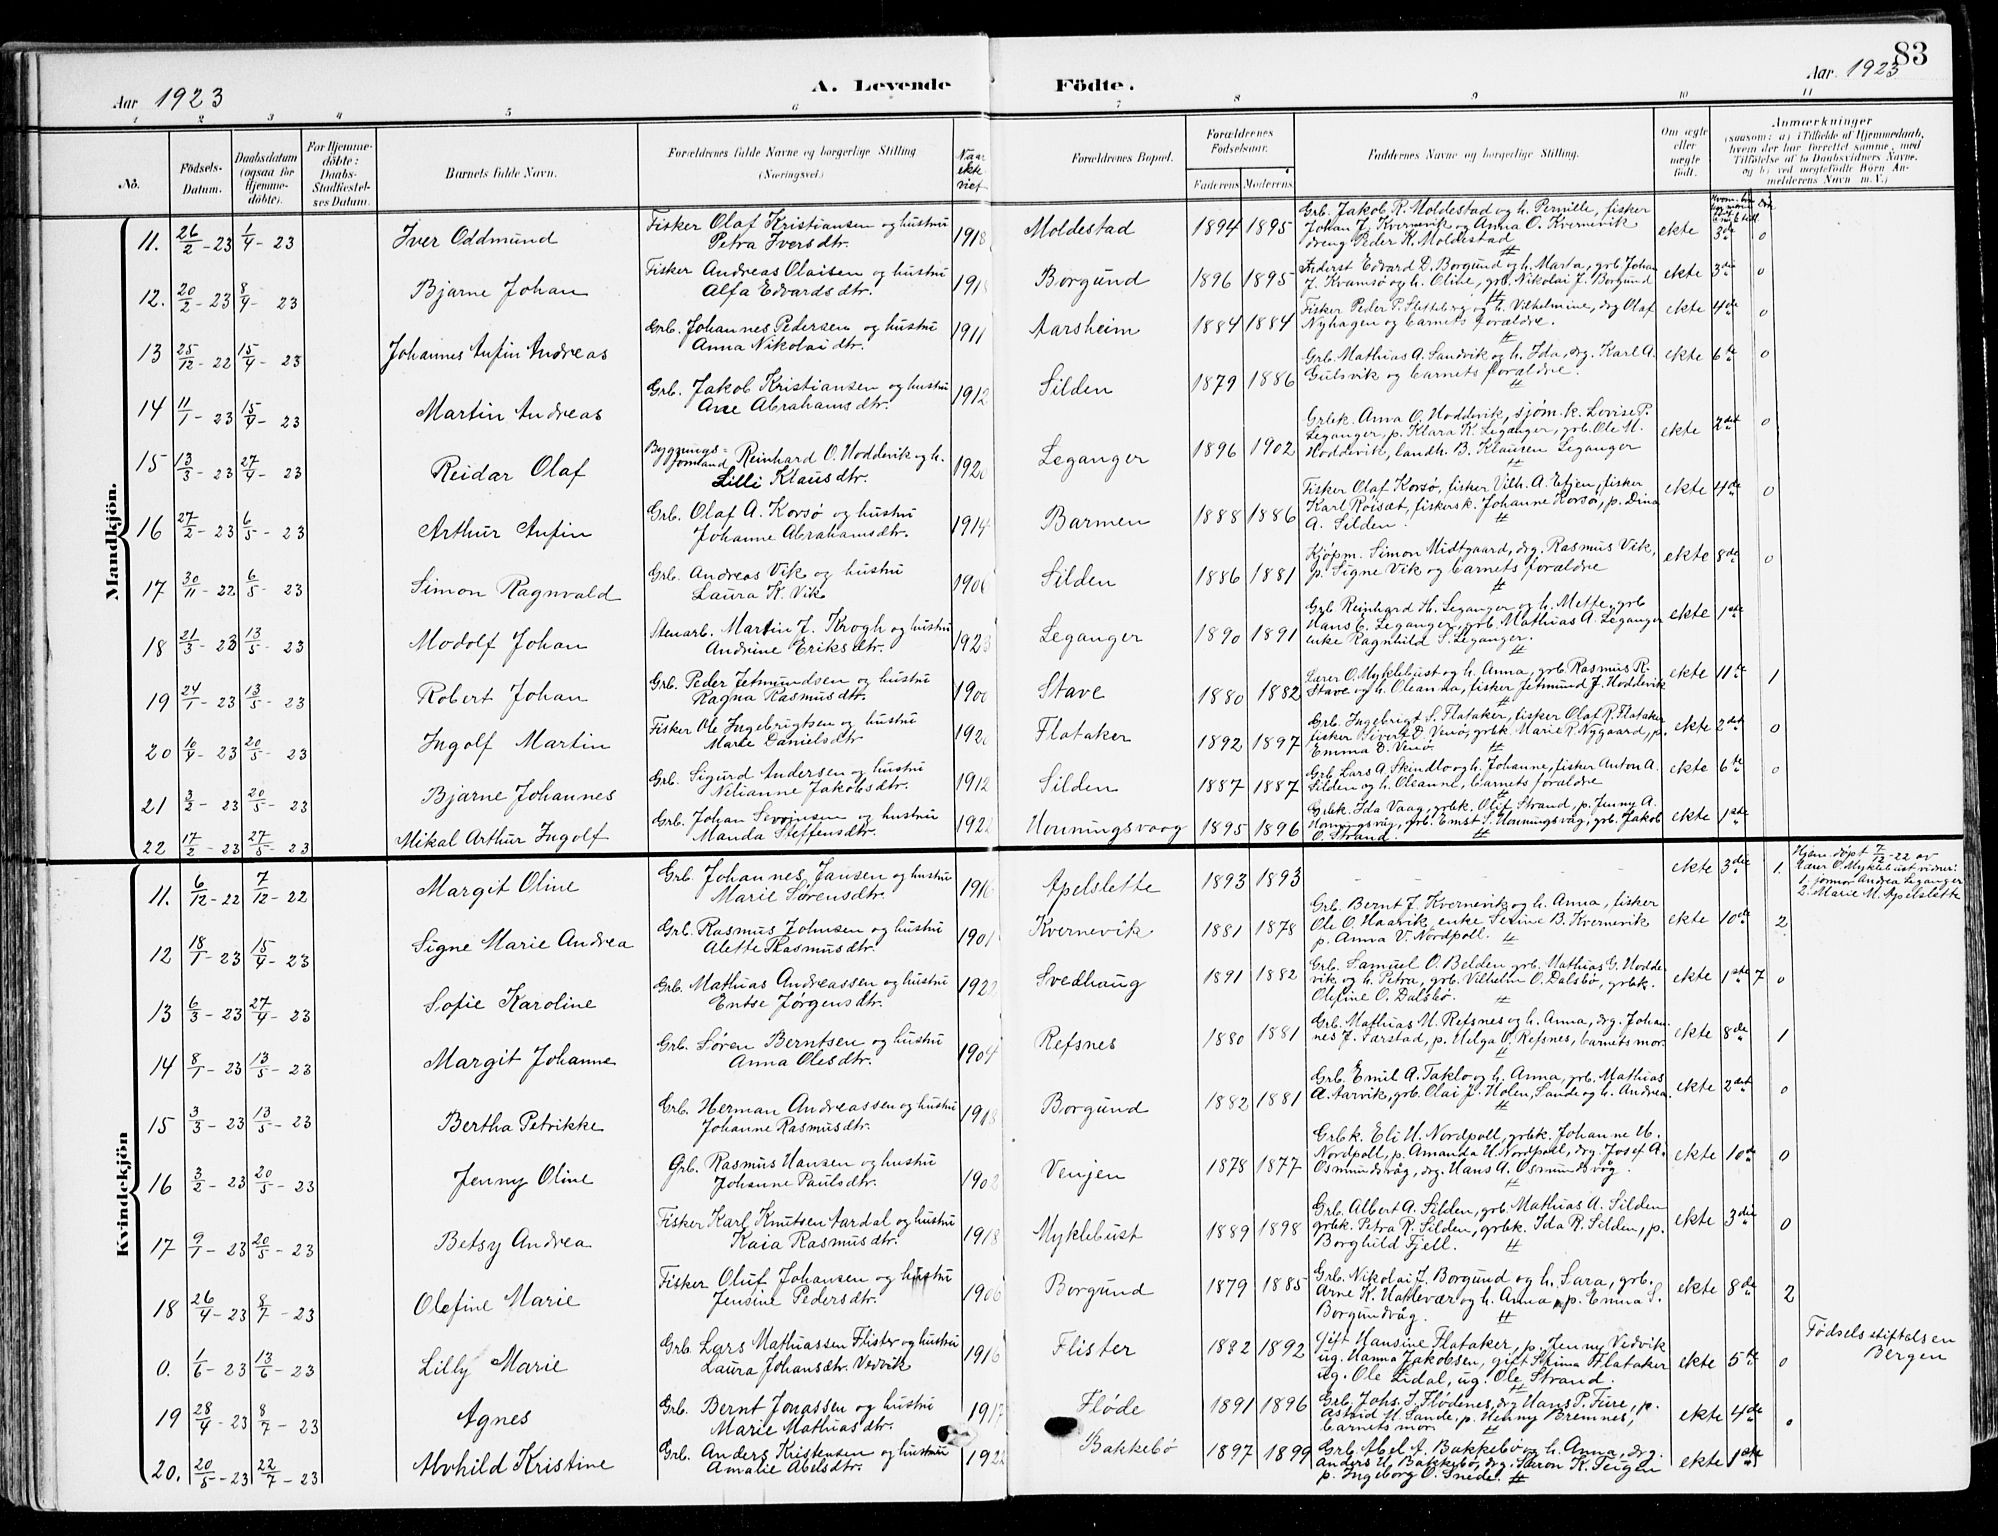 83
Aar 1923 A. Levende Födte. Aar 1923
1 2 3 4 5 6 7 8 9 10 11
No.
Födsels-Datum.
Daabsdatum (ogsaa for Hjemme-döbte).
For Hjemme-döbte: Daabs-Stadfæstel-ses Datum.
Barnets fulde Navn.
Forældrenes fulde Navne og borgerlige Stilling (Næringsvei)
Naar ekte viet
Forældrenes Bopæl.
Forældrenes Födselsaar.
Faderens Moderens
Faddernes Navne og borgerlige Stilling.
Om ægte eller uægte födt.
Anmærkninger
(saasom: a) i Tilfælde af Hjemmedaab, hvem der har forrettet samme, med Tilföielse af to Daabsvidners Navne, og b) ved uægtefödte Börn Anmelderens Navn m.V.)
Mandkjön.
11. 26/2-23 1/4-23 Iver Oddmund Fisker Olaf Kristiansen og hustru Petra Iversdtr. 1918 Moldestad 1894 1895 Grb. Jakob R. Moldestad og h. Pernille, fisker Johan J. Kvernevik og Anna O. Kvernevik dreng Peder K. Moldestad ekte 3de 0
12. 20/2-23 8/4-23 Bjarne Johan Fisker Andreas Olaisen og hustru Alfa Edvardsdtr. Borgund 1896 1895 Føderst Edvard D. Borgund og h. Marta, grb. Johan J. Kramsø og h. Oline, grb. Nikolai J. Borgund ekte 3de 0
13 25/12-22 15/4-23 Johannes Anfin Andreas Grb. Johannes Pedersen og hustru Anna Nikolaidtr. 1911 Aarsheim 1884 1884 Fisker Peder P. Sletteberg og h. Vilhelmine, drg Olaf Nyhagen og barnets forældre. ekte 4de 0
14 11/1-23 15/4-23 Martin Andreas Grb. Jakob Kristiansen og hustru Ane Abrahamsdtr. 1912 Silden 1879 1886 Grb. Mathias A. Sandvik og h. Ida, drg. Karl A. Gulsvik og barnets forældre. ekte 6te 0
15 13/3-23 27/4-23 Reidar Olaf Bygnings= formand Reinhard O. Hoddevik og h. Lilli Klausdtr. 1920 Leganger 1896 1902 Grbk. Anna O. Hoddevik, sjøm.k. Lovise P. Leganger, p. Klara K. Leganger, grb. Ole M. Hoddevik, landh. B. Klausen Leganger ekte 2det 0
16 27/2-23 6/5-23 Arthur Anfin Grb. Olaf A. Korsø og hustru Johanne Abrahamsdtr. 1914 Barmen 1888 1886 Fisker Olaf Korsø, fisker Vilh. A. Etjen, fisker Karl Røisæt, fiskersk. Johanne Korsø, p. Dina A. Silden. ekte 4de 0
17 30/11-22 6/5-23 Simon Ragnvald Grb. Andreas Vik og hustru Laura K. Vik Silden 1886 1881 Kjøpm. Simon Midtgaard, drg. Rasmus Vik, p. Signe Vik og barnets forældre ekte 8de 0
18 21/3-23 13/5-23 Modolf Johan Stenarb. Martin J. Krogh og hustru Andrine Eriksdtr. 1923 Leganger 1890 1891 Grb Reinhard H. Leganger og h. Mette, grb Hans C. Leganger, grb. Mathias A. Leganger enke Ragnhild S. Leganger. ekte 1ste
19 24/1-23 13/5-23 Robert Johan Grb. Peder Jetmundsen og hustru Ragna Rasmusdtr. Stave 1880 1882 Lærer O. Myklebust og h. Anna, grb. Rasmus R. Stave og h. Oleanna, fisker Jetmund J. Hoddevik ekte 11te 1
20 10/4-23 20/5-23 Ingolf Martin Fisker Ole Ingebrigtsen og hustru Marte Danielsdtr 1920 Flataker 1892 1897 Grb. Ingebrigt S. Flataker, fisker Olaf R. Flataker fisker Sivert D. Venø, grbk. Marie R. Nygaard, p. Emma D. Venø. ekte 2det 0
21 3/2-23 20/5-23 Bjarne Johannes Grb. Sigurd Andersen og hustru Nelianne Jakobsdtr. 1912 Silden 1887 1887 Grb Lars A. Skindlo og h. Johanne, fisker Anton A. Silden og h. Olianne, barnets forældre ekte 6te 0
22 17/2-23 27/5-23 Mikal Arthur Ingolf Grb. Johan Severinsen og hustru Manda Steffensdtr. 1922 Honningsvaag 1895 1896 Grbk. Ida Vaag, grbk. Olif Strand, p. Jenny A. Honningsvåg, grb. Ernst S. Honningsvåg, grb. Jakob O. Strand. ekte 1ste
Kvindekjön
11. 6/12-22 7/12-22 Margit Oline Grb. Johannes Jansen og hustru Marie Sørensdtr. 1916 Apelslette 1893 1893 ekte 3die 1. Hjem.døpt 7/12-22 av Lærer O. Myklebust vidner: 1. jomor Andrea Leganger 2. Marie M. Apelslette
12 18/1-23 15/4-23 Signe Marie Andrea Grb. Rasmus Johnsen og hustru Alette Rasmusdtr. 1901 Kvernevik 1881 1878 Grb. Bernt J. Kvernevik og h. Anna, fisker Ole O. Haarvik enke Serine B. Kvernevik p. Anna V. Nordpoll. ekte 10de 2
13 6/3-23 27/4-23 Sofie Karoline Grb. Mathias Andreassen og hustru Entse Jørgensdtr. 1922 Svedhaug 1891 1882 Grb. Samuel O. Belden grb. Mathias G. Hoddevik og h. Petra, grb. Vilhelm O. Dalsbø, grbk. Olefine O. Dalsbø. ekte 1ste 7 0
14 8/1-23 13/5-23 Margit Johanne Grb. Søren Berntsen og hustru Anna Olesdtr. 1904 Refsnes 1880 1881 Grb. Mathias M. Refsnes og h. Anna, drg. Johannes J. Sarstad, p. Helga O. Refsnes, barnets mor. ekte 8de 1
15 3/3-23 13/5-23 Bertha Petrikke Grb. Herman Andreassen og hustru Johanne Rasmusdtr. 1918 Borgund 1882 1881 Grb. Emil A. Taklo og h. Anna, grb. Mathias A. Aarvik, grb. Olai J. Holen, Sande og h. Andrea. ekte 2det 0
16 3/2-23 20/5-23 Jenny Oline Grb. Rasmus Hansen og hustru Johanne Paulsdtr. 1902 Venjen 1878 1877 Grbk. Eli H. Nordpoll, grbk. Johanne M. Nordpoll, p. Amanda H. Nordpoll, drg. Josef A. Osmundsvåg, drg. Hans A. Osmundsvåg. ekte 10de 0
17 9/1-23 20/5-23 Betsy Andrea Fisker Karl Knutsen Aardal og hustru Kaia Rasmusdtr. 1918 Myklebust 1889 1898 Grb. Albert A. Silden, grb. Mathias A. Silden grbk. Petra R. Silden, grbk. Ida R. Silden, p. Borghild Fjell. ekte 3die 0
18 26/4-23 8/7-23 Olefine Marie Fisker Oluf Johansen og hustru Jensine Pedersdtr. 1906 Borgund 1879 1885 Grb. Nikolai J. Borgund og h. Sara, grb. Arne K. Haldevær og h. Anna, p. Emma S. Borgundvåg. ekte 8de 2
0. 1/6-23 13/6-23 Lilly Marie Grb. Lars Mathiassen Flister og hustru Laura Johansdtr. Vedvik 1916 Flister 1882 1892 Gift Hansine Flataker, p. Jenny Vedvik ug. Hanna Jakobsen, gift Stina Flataker ug. Ole Lidal, ug. Ole Strand. ekte 5te 0 Fødselsstiftelsen Bergen
19 28/4-23 8/7-23 Agnes Grb. Bernt Jonassen og hustru Marie Mathiasdtr. 1917 Fløde 1891 1896 Grb. Johs. J. Flødenes, drg Hans P. Fure, p. Astrid H. Sande, p. Henny Bremnes, barnets mor. ekte 4de 0
20. 20/5-23 22/7-23 Alvhild Kristine Grb. Anders Kristensen og hustru Amalie Abelsdtr. 1922 Bakkebø 1897 1899 Grb. Abel A. Bakkebø og h. Anna, drg. Anders H. Bakkebø, drg. Søren K. Teigen p. Ingeborg O. Snede. ekte 1ste